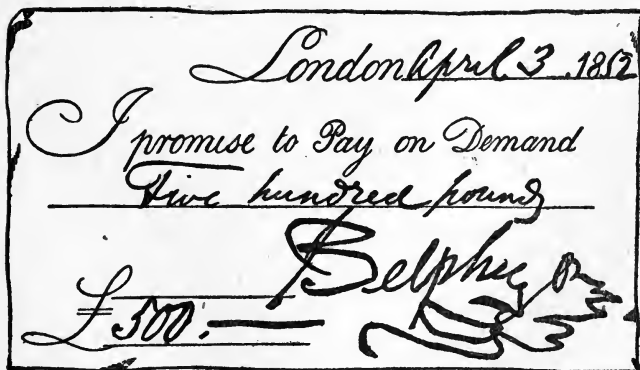 London April 3 .1852
I promise to Pay on Demand
Five hundred pounds
Belphegor
£ 500.